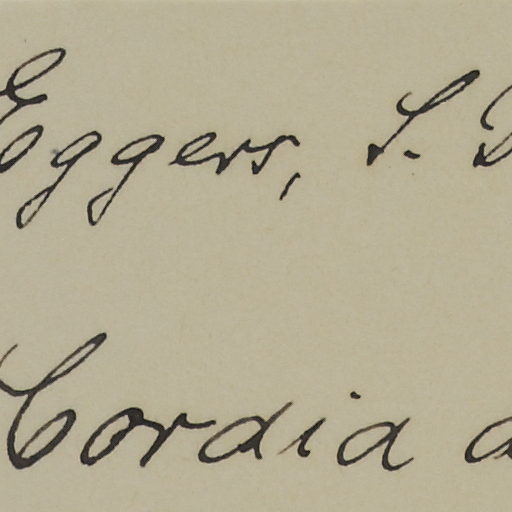 Eggers, S.
Cordia